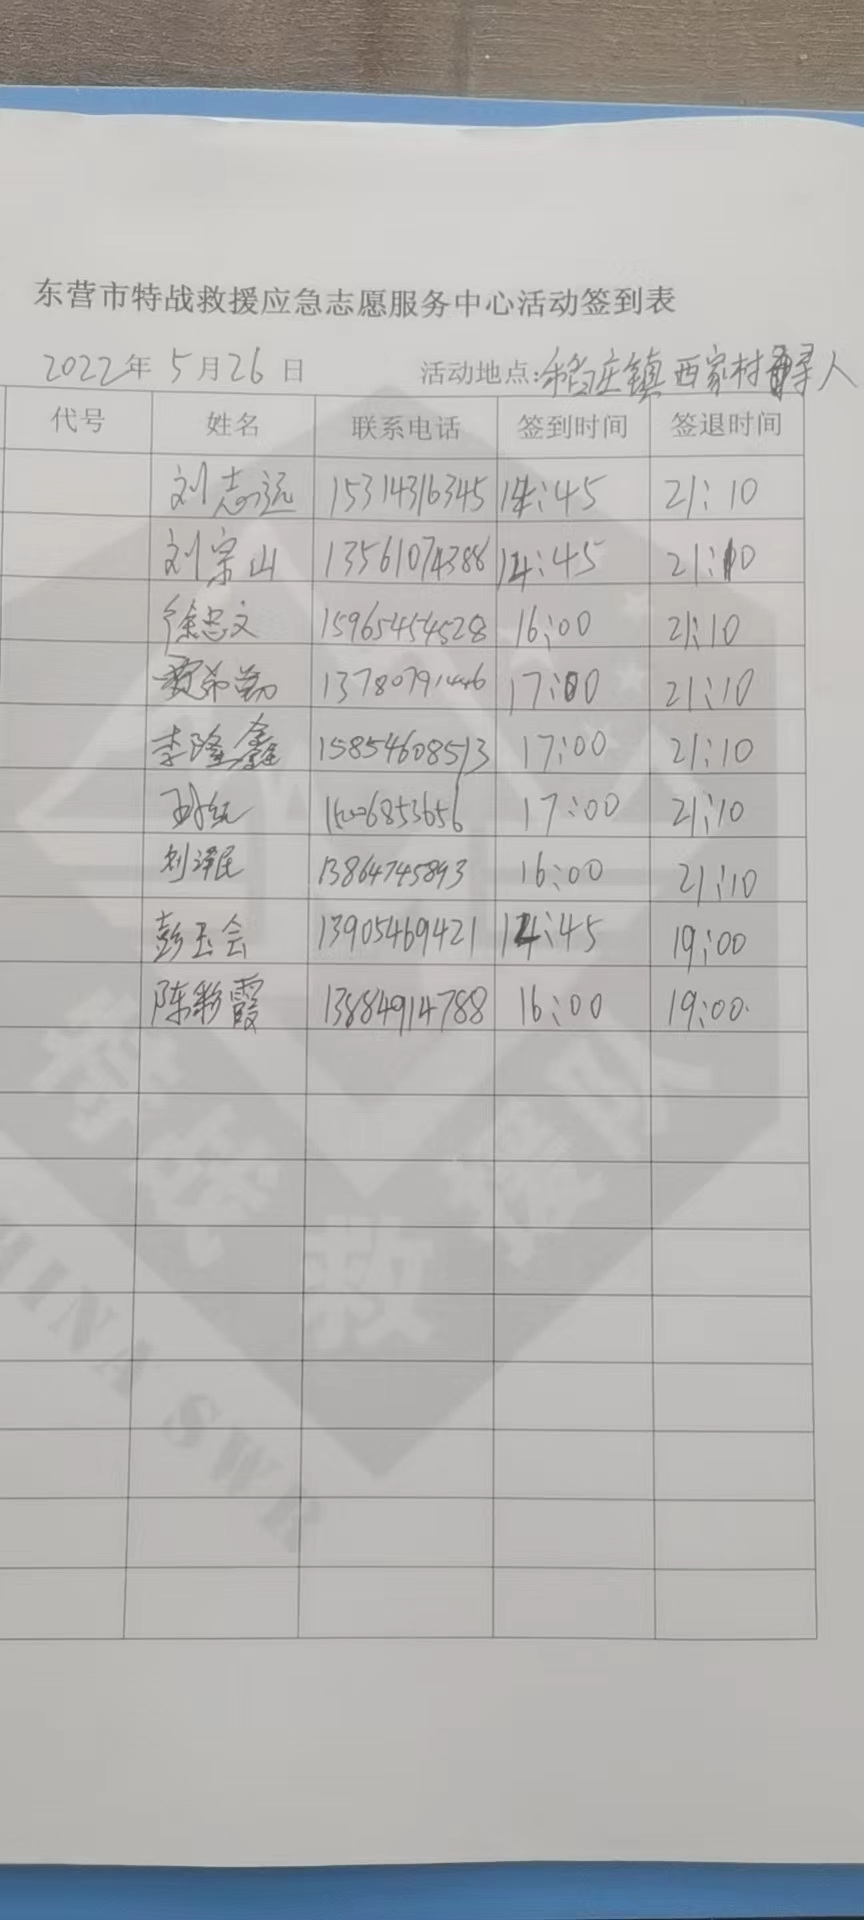 东营市特战救援应急志愿服务中心活动签到表
2022年5月26日 活动地点:稻庄镇西家村寻人
代号 姓名 联系电话 签到时间 签退时间
刘志远 15314316345 14:45 21:10
刘宗山 13561074388 14:45 21:10
徐忠文 15965454528 16:00 21:10
13780791446 17:00 21:10
李隆鑫 15854608513 17:00 21:10
17:00 21:10
刘泽民 13864745893 16:00 21:10
彭玉会 13905469421 14:45 19:00
陈彩霞 13884914788 16:00 19:00
特战救援队
CHINA SWR